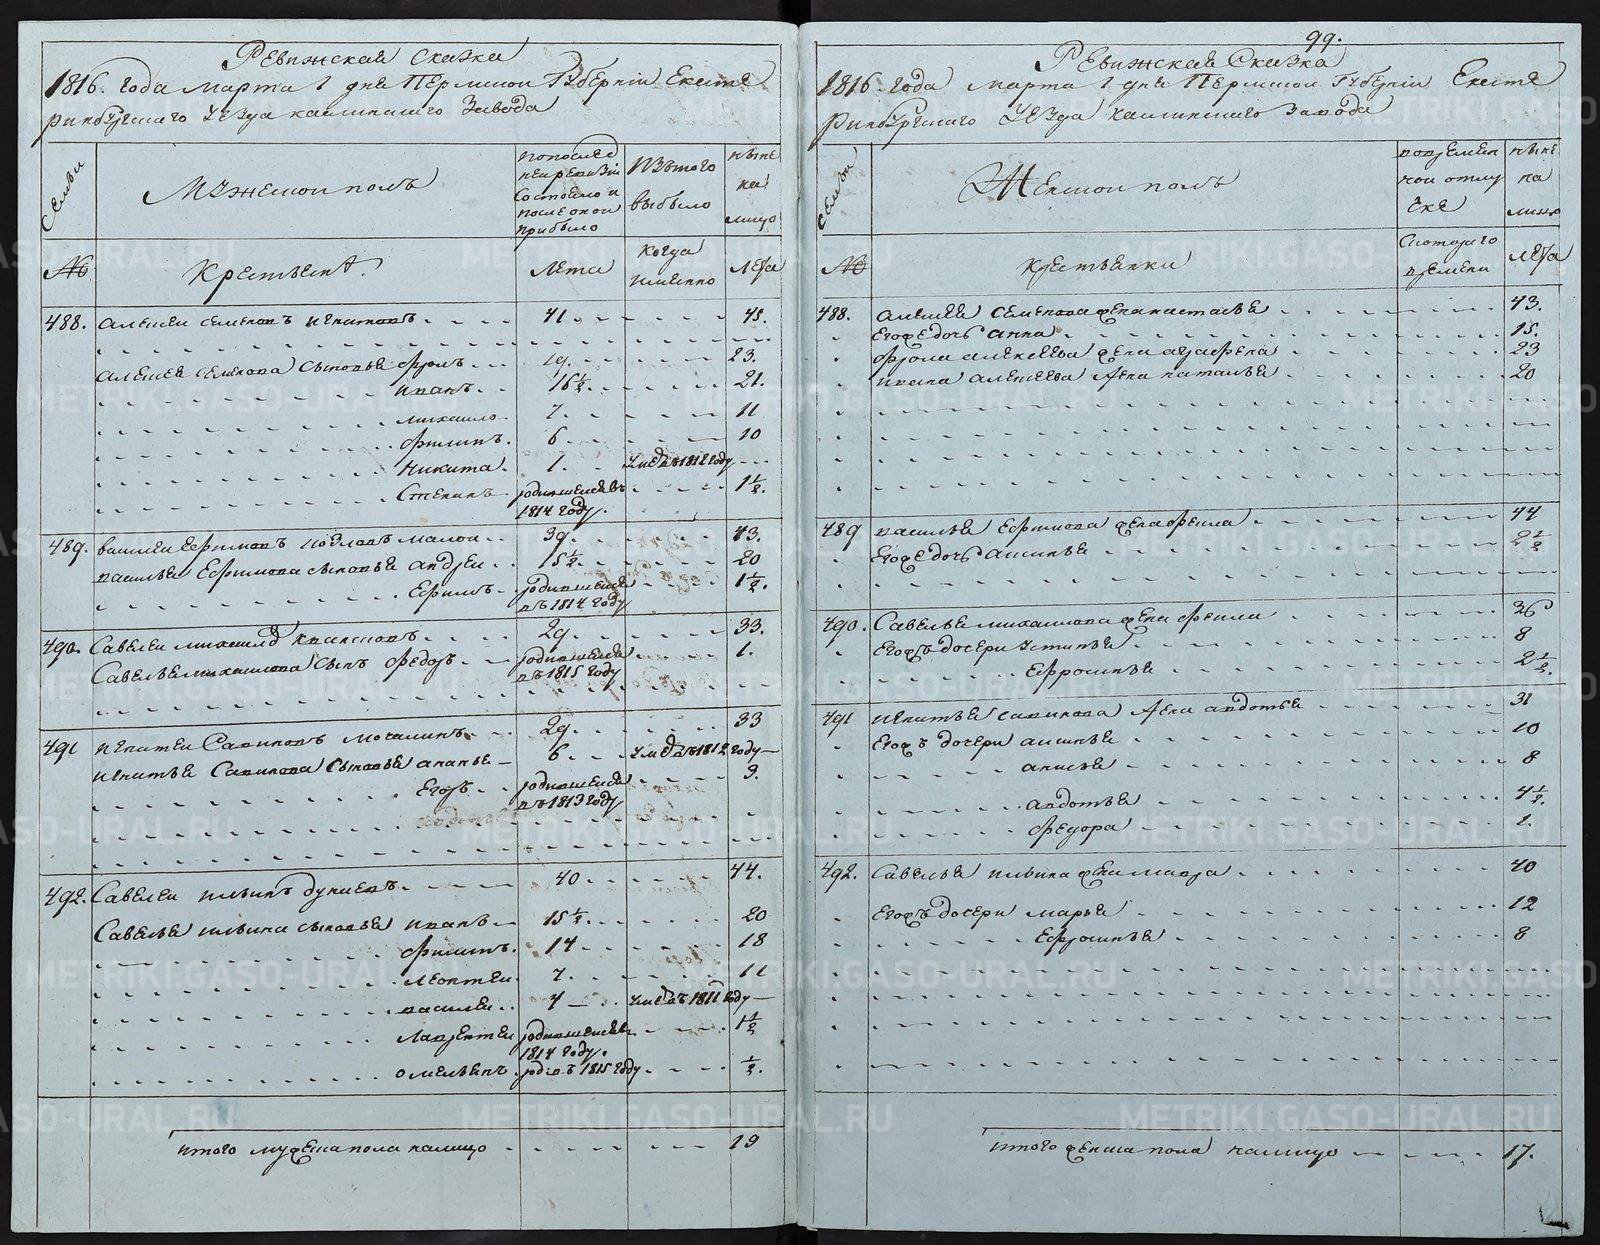 Ревижская Сказка
1816. года марта 1 дня Пермской Губернии Екате
ринбургскаго Уезда каслинскаго Завода
Семьи
Мужескои полъ
попослед
неи ревизіи
Состояло и
после онои
прибыло
Изътого
выбыло
ныне
на
лицо
№
Крестьяня.
Лета
когда
имянно
Лета
488. алексеи семеновъ игнатовъ 41. 45.
алексея семенова сыновья фролъ 19. 23.
иванъ 16½. 21.
михаило 7. 11
филипъ. 6 10
Никита. 1. умеръ въ 1812 году
Степанъ родившеися въ 1½.
1814 году.
489. василеи Ефимовъ малои 39. 43.
василья Ефимова сыновья андреи 15½. 20
Ефимъ родившеися 1½.
въ 1814 году
490. Савелеи михаиловъ 29. 33.
Савелья михаилова сынъ федоръ родившеися 1.
въ 1815 году
491 игнатеи Савиновъ мочалинъ 29. 33
игнатья Савинова сыновья ананья 6. умеръ въ 1812 году
Егоръ родившеися 3.
въ 1813 году
492. Савелеи ильинъ 40 44.
Савелья ильина сыновья иванъ 15½. 20
филипъ. 14 18
леонтеи 7. 11
василеи 4 умеръ въ 1811 году
Лаврентеи родившеися въ 1½
1814 году.
омельянъ. род: въ 1815 году ½.
итого мужеска пола налицо 19
99.
Ревижская Сказка
1816 года марта 1 дня Пермской Губерніи Екате
ринбургскаго Уезда каслинскаго Завода
Семьи
Женскои полъ
вовремен
нои отлу
чке
ныне
на
лицо
№
крестьянки
Скотораго
времени
лета
488. алексея семенова жена настасья 43.
Егожедочь анна 15.
фрола алексеева жена аграфена 23
ивана алексеева жена наталья 20
489 василья Ефимова жена фекла 44
Егожедочь аксинья 2½
490. Савелья михаилова жена фекла 36
Егожъ дочери устинья 8
Ефросинья 2½.
491 игнатья савинова жена авдотья 31
Егожъ дочери аксинья 10
анисья 8
авдотья 4½.
федора 1.
492. Савелья ильина жена мавра 40
Егожъ дочери марья 12
Ефросинья 8
итого женска пола налицо 17.
METRIKI.GASO-URAL.RU